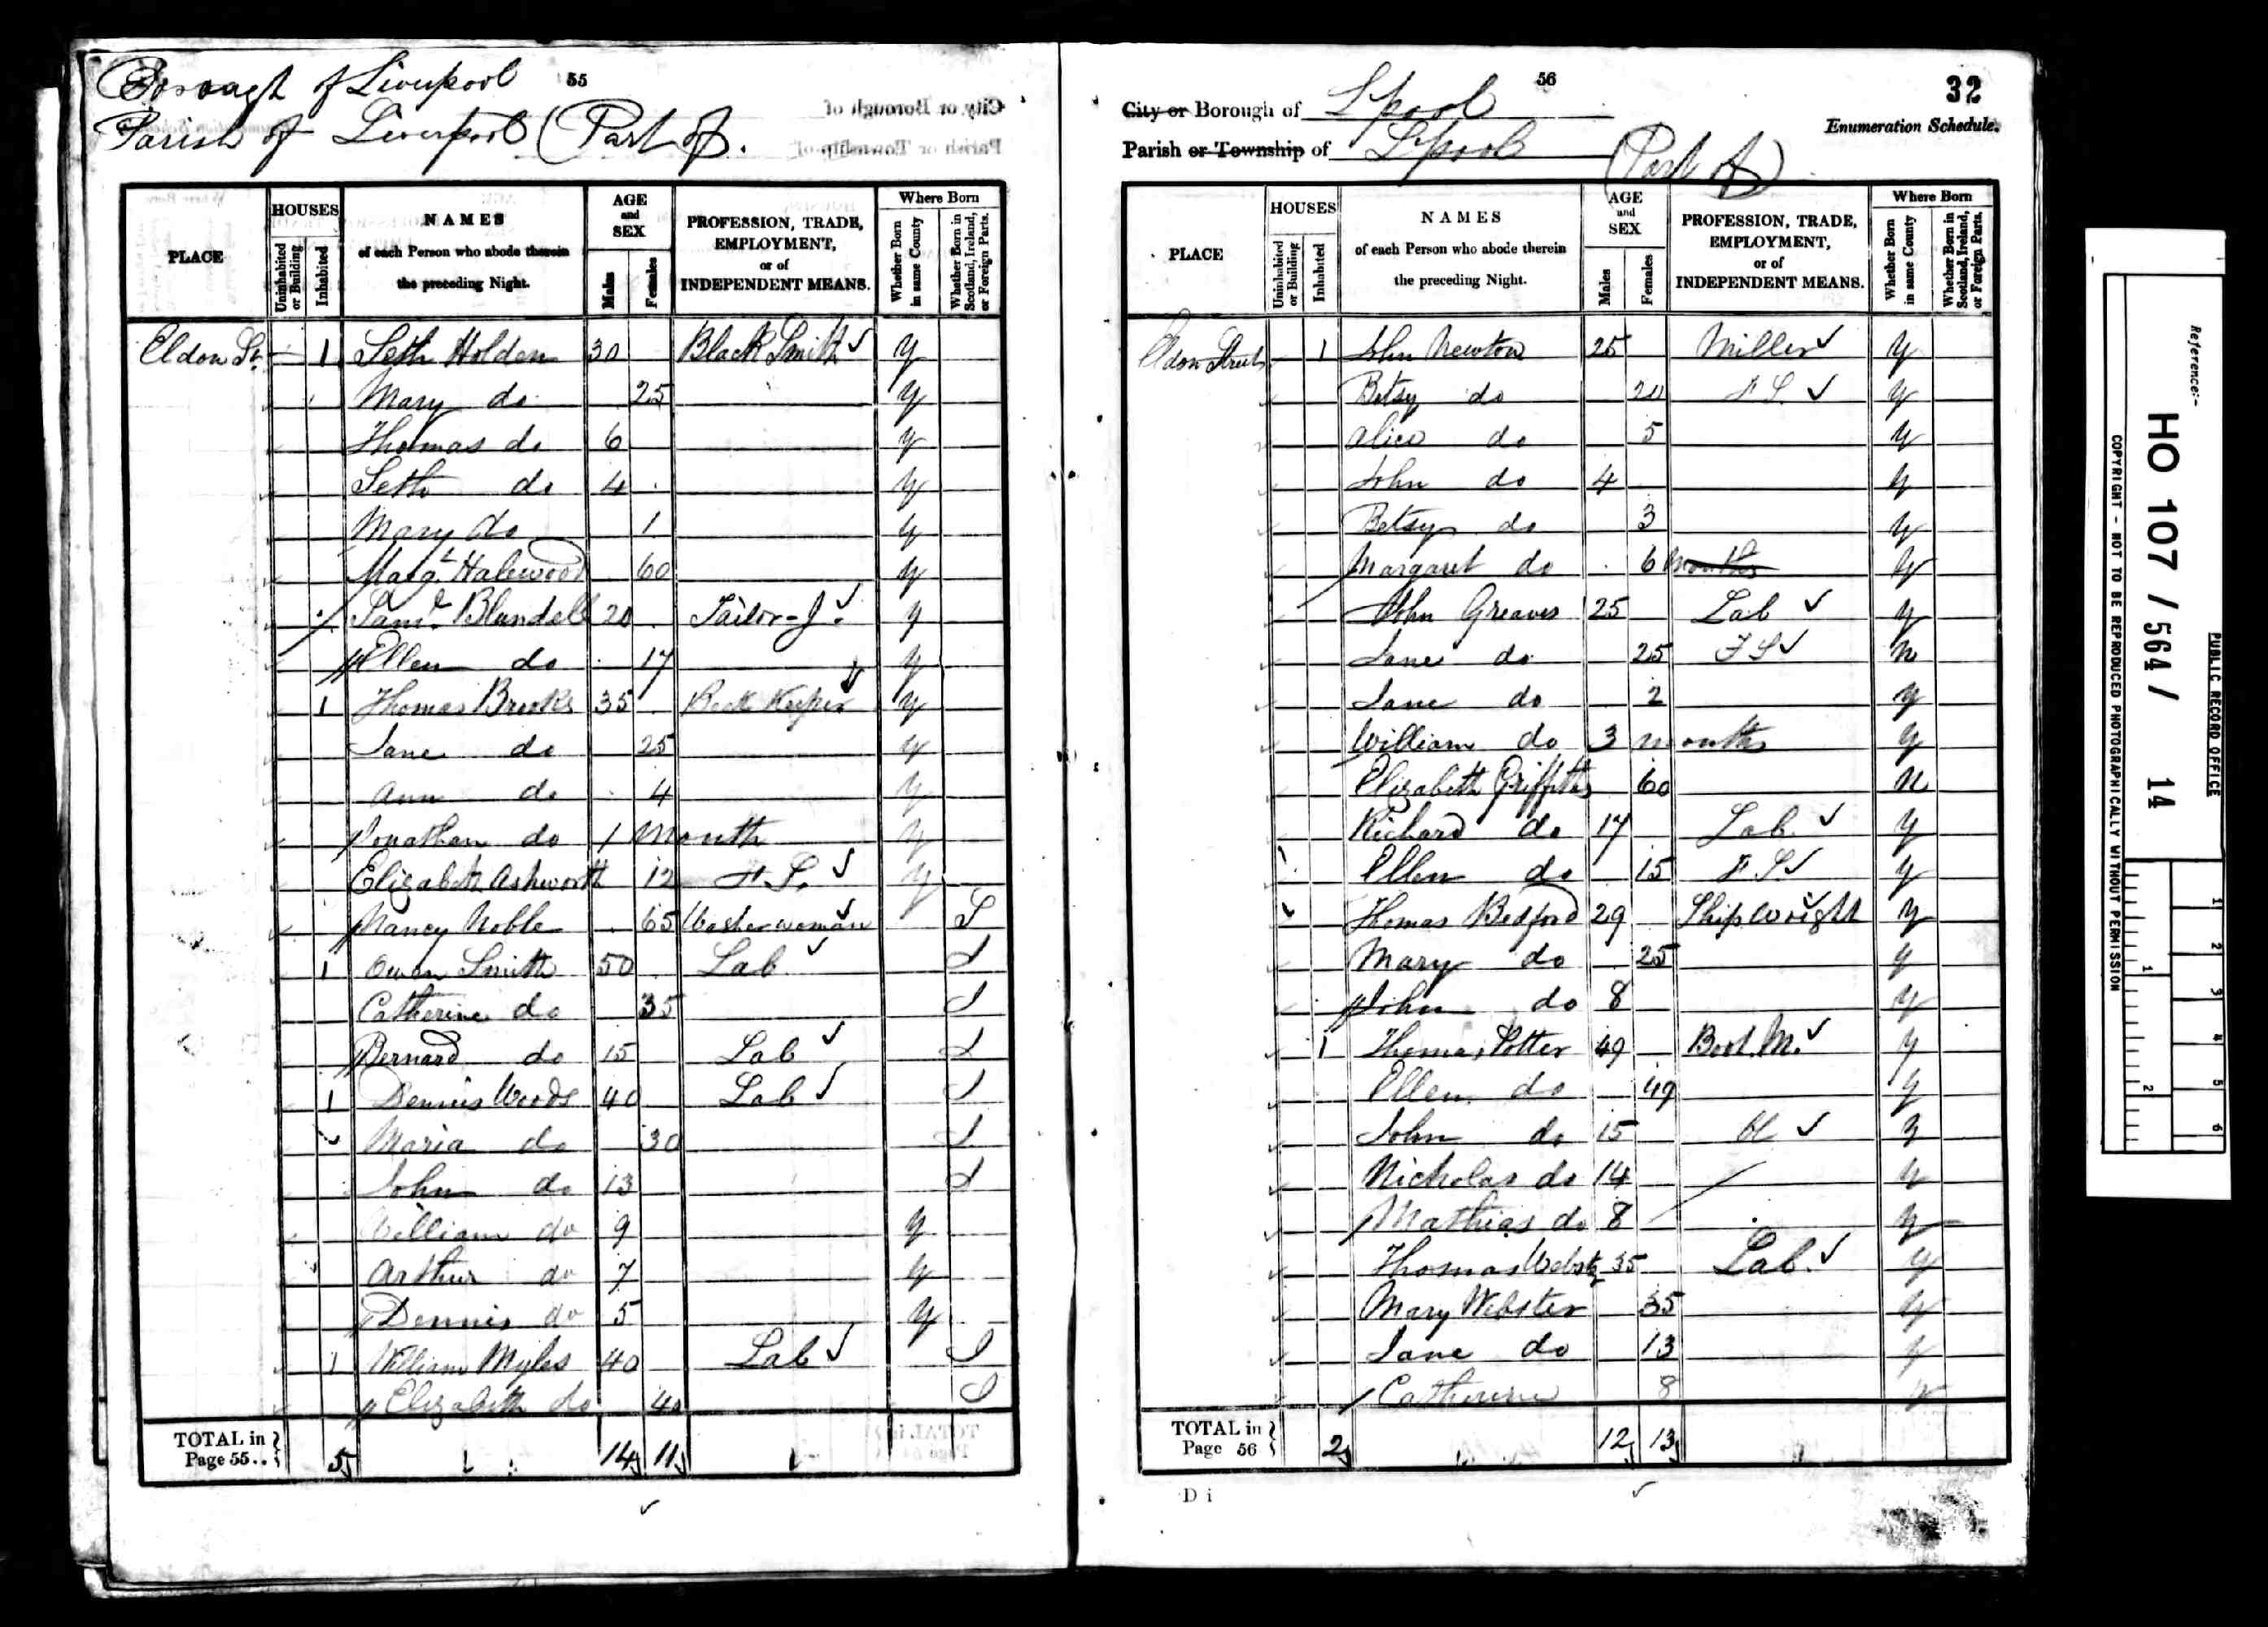 Borough of Liverpool 55
Parish of Liverpool (Part of.
PLACE
HOUSES
Uninhabited or Building
Inhabited
NAMES of each Person who abode therein the preceding Night.
AGE and SEX
Males
Females
PROFESSION, TRADE, EMPLOYMENT, or of INDEPENDENT MEANS.
Where Born
Whether Born in same County
Whether Born in Scotland, Ireland, or Foreign Parts.
Eldon St. 1 Seth Holden 30 Black Smith y
Mary do 25 y
Thomas do 6 y
Seth do 4 y
Mary do 1 y
Margt Halewood 60 y
Saml Blundell 20 Tailor-J. y
Ellen do 17 y
1 Thomas Brooks 35 Book Keeper y
Jane do 25 y
Ann do 4 y
Jonathan do 1 Month y
Elizabeth Ashworth 12 F.S. y
Nancy Noble 65 Washerwoman I
1 Owen Smith 50 Lab I
Catherine do 35 I
Bernard do 15 Lab I
1 Dennis Woods 40 Lab I
Maria do 30 I
John do 13 I
William do 9 y
Arthur do 7 y
Dennis do 5 y
1 William Myles 40 Lab I
Elizabeth do 40 I
TOTAL in Page 55.. 5 14 11
56
32
City or Borough of L'pool
Enumeration Schedule.
Parish or Township of L'pool (Part of)
PLACE
HOUSES
Uninhabited or Building
Inhabited
NAMES of each Person who abode therein the preceding Night.
AGE and SEX
Males
Females
PROFESSION, TRADE, EMPLOYMENT, or of INDEPENDENT MEANS.
Where Born
Whether Born in same County
Whether Born in Scotland, Ireland, or Foreign Parts.
Eldon Street 1 John Newton 25 Miller y
Betsy do 20 F.S. y
Alice do 5 y
John do 4 y
Betsy do 3 y
Margaret do 6 Months y
John Greaves 25 Lab y
Jane do 25 F S n
Jane do 2 y
William do 3 months y
Elizabeth Griffiths 60 n
Richard do 17 Lab. y
Ellen do 15 F.S y
Thomas Bedford 29 Shipwright y
Mary do 25 y
John do 8 y
1 Thomas Potter 49 Boot. M. y
Ellen do 49 y
John do 15 y
Nicholas do 14 y
Mathias do 8 y
Thomas Webstr 35 Lab. y
Mary Webster 35 y
Jane do 13 y
Catherine 8 y
TOTAL in Page 56 2 12 13
D i
Reference:-
HO 107 / 564 / 14
PUBLIC RECORD OFFICE
COPYRIGHT - NOT TO BE REPRODUCED PHOTOGRAPHICALLY WITHOUT PERMISSION
1 2 3 4 5 6
1 2